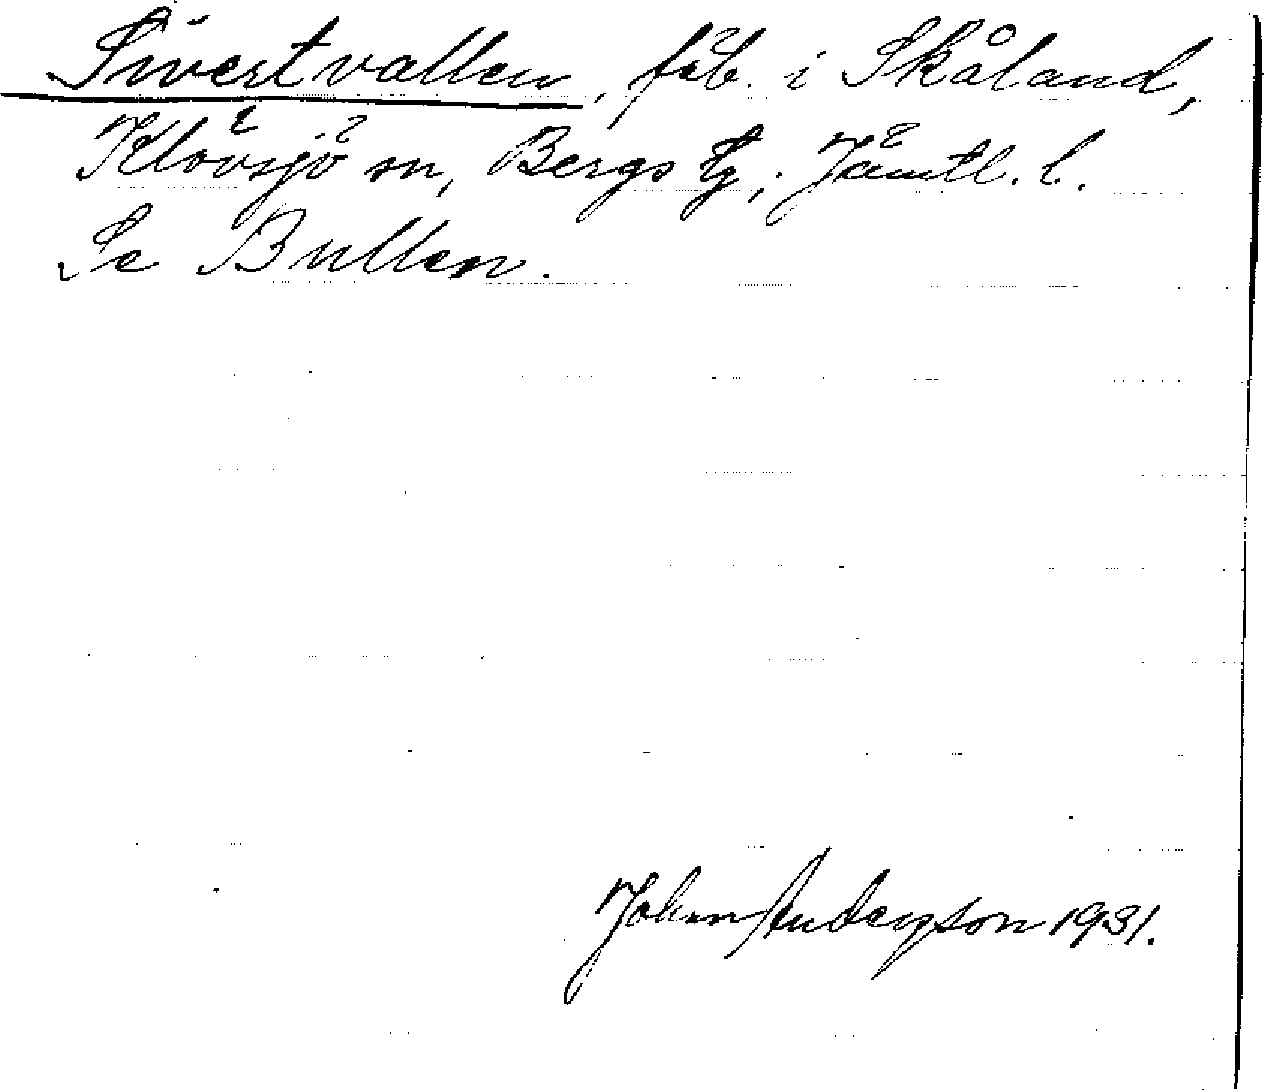 Sivertvallen, fäb. i Skåland,
Klövsjö sn, Bergs tg, Jämtl. l.
Se Bullen.
Johan Anderson 1931.